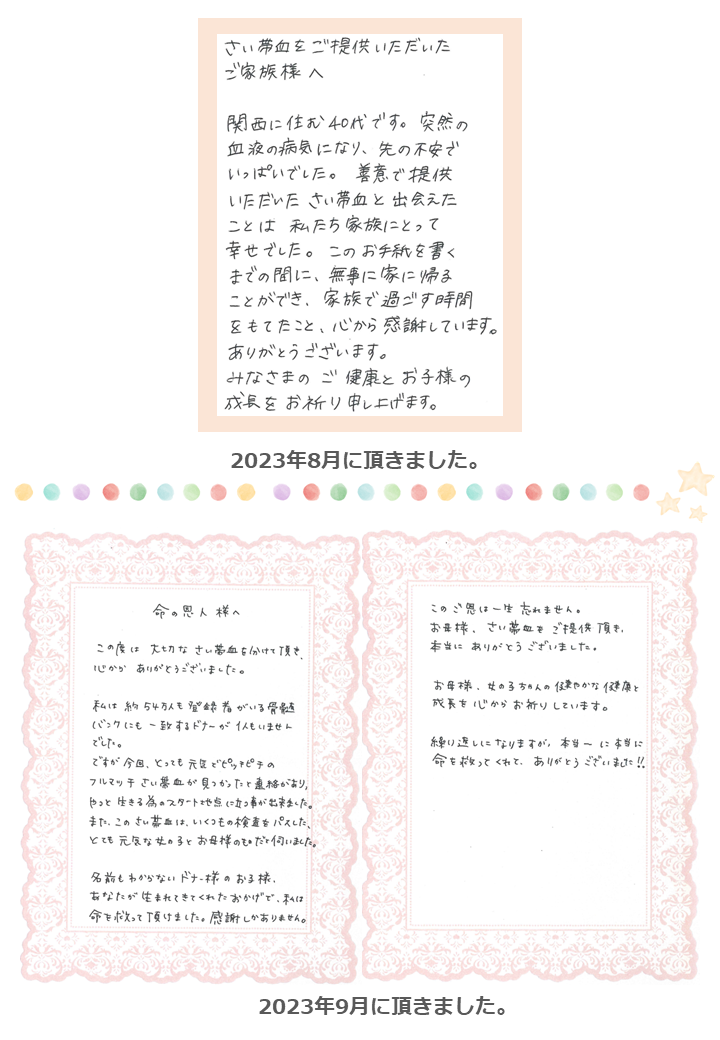 さい帯血をご提供いただいた
ご家族様へ
関西に住む40代です。突然の
血液の病気になり、先の不安で
いっぱいでした。善意で提供
いただいたさい帯血と出会えた
ことは 私たち家族にとって
幸せでした。このお手紙を書く
までの間に、無事に家に帰る
ことができ、家族で過ごす時間
をもてたこと、心から感謝しています。
ありがとうございます。
みなさまの ご健康とお子様の
成長をお祈り申し上げます。
2023年8月に頂きました。
命の恩人様へ
この度は 大切な さい帯血を分けて頂き、
心から ありがとうございました。
私は 約54万人も登録者がいる骨髄
バンクにも一致するドナーが1人もいません
でした。
ですが今回、とっても元気でピッチピチの
フルマッチさい帯血が見つかったと連絡があり、
やっと生きる為のスタート地点に立つ事が出来ました。
また、このさい帯血は、いくつもの検査をパスした、
とても元気な女の子とお母様のものだと伺いました。
名前もわからないドナー様のお子様、
あなたが生まれてきてくれたおかげで、私は
命を救って頂けました。感謝しかありません。
このご恩は一生忘れません。
お母様、さい帯血をご提供頂き、
本当にありがとうございました。
お母様、女の子ちゃんの健やかな健康と
成長を心からお祈りしています。
繰り返しになりますが、本当ーに本当に
命を救ってくれて、ありがとうございました!!
2023年9月に頂きました。